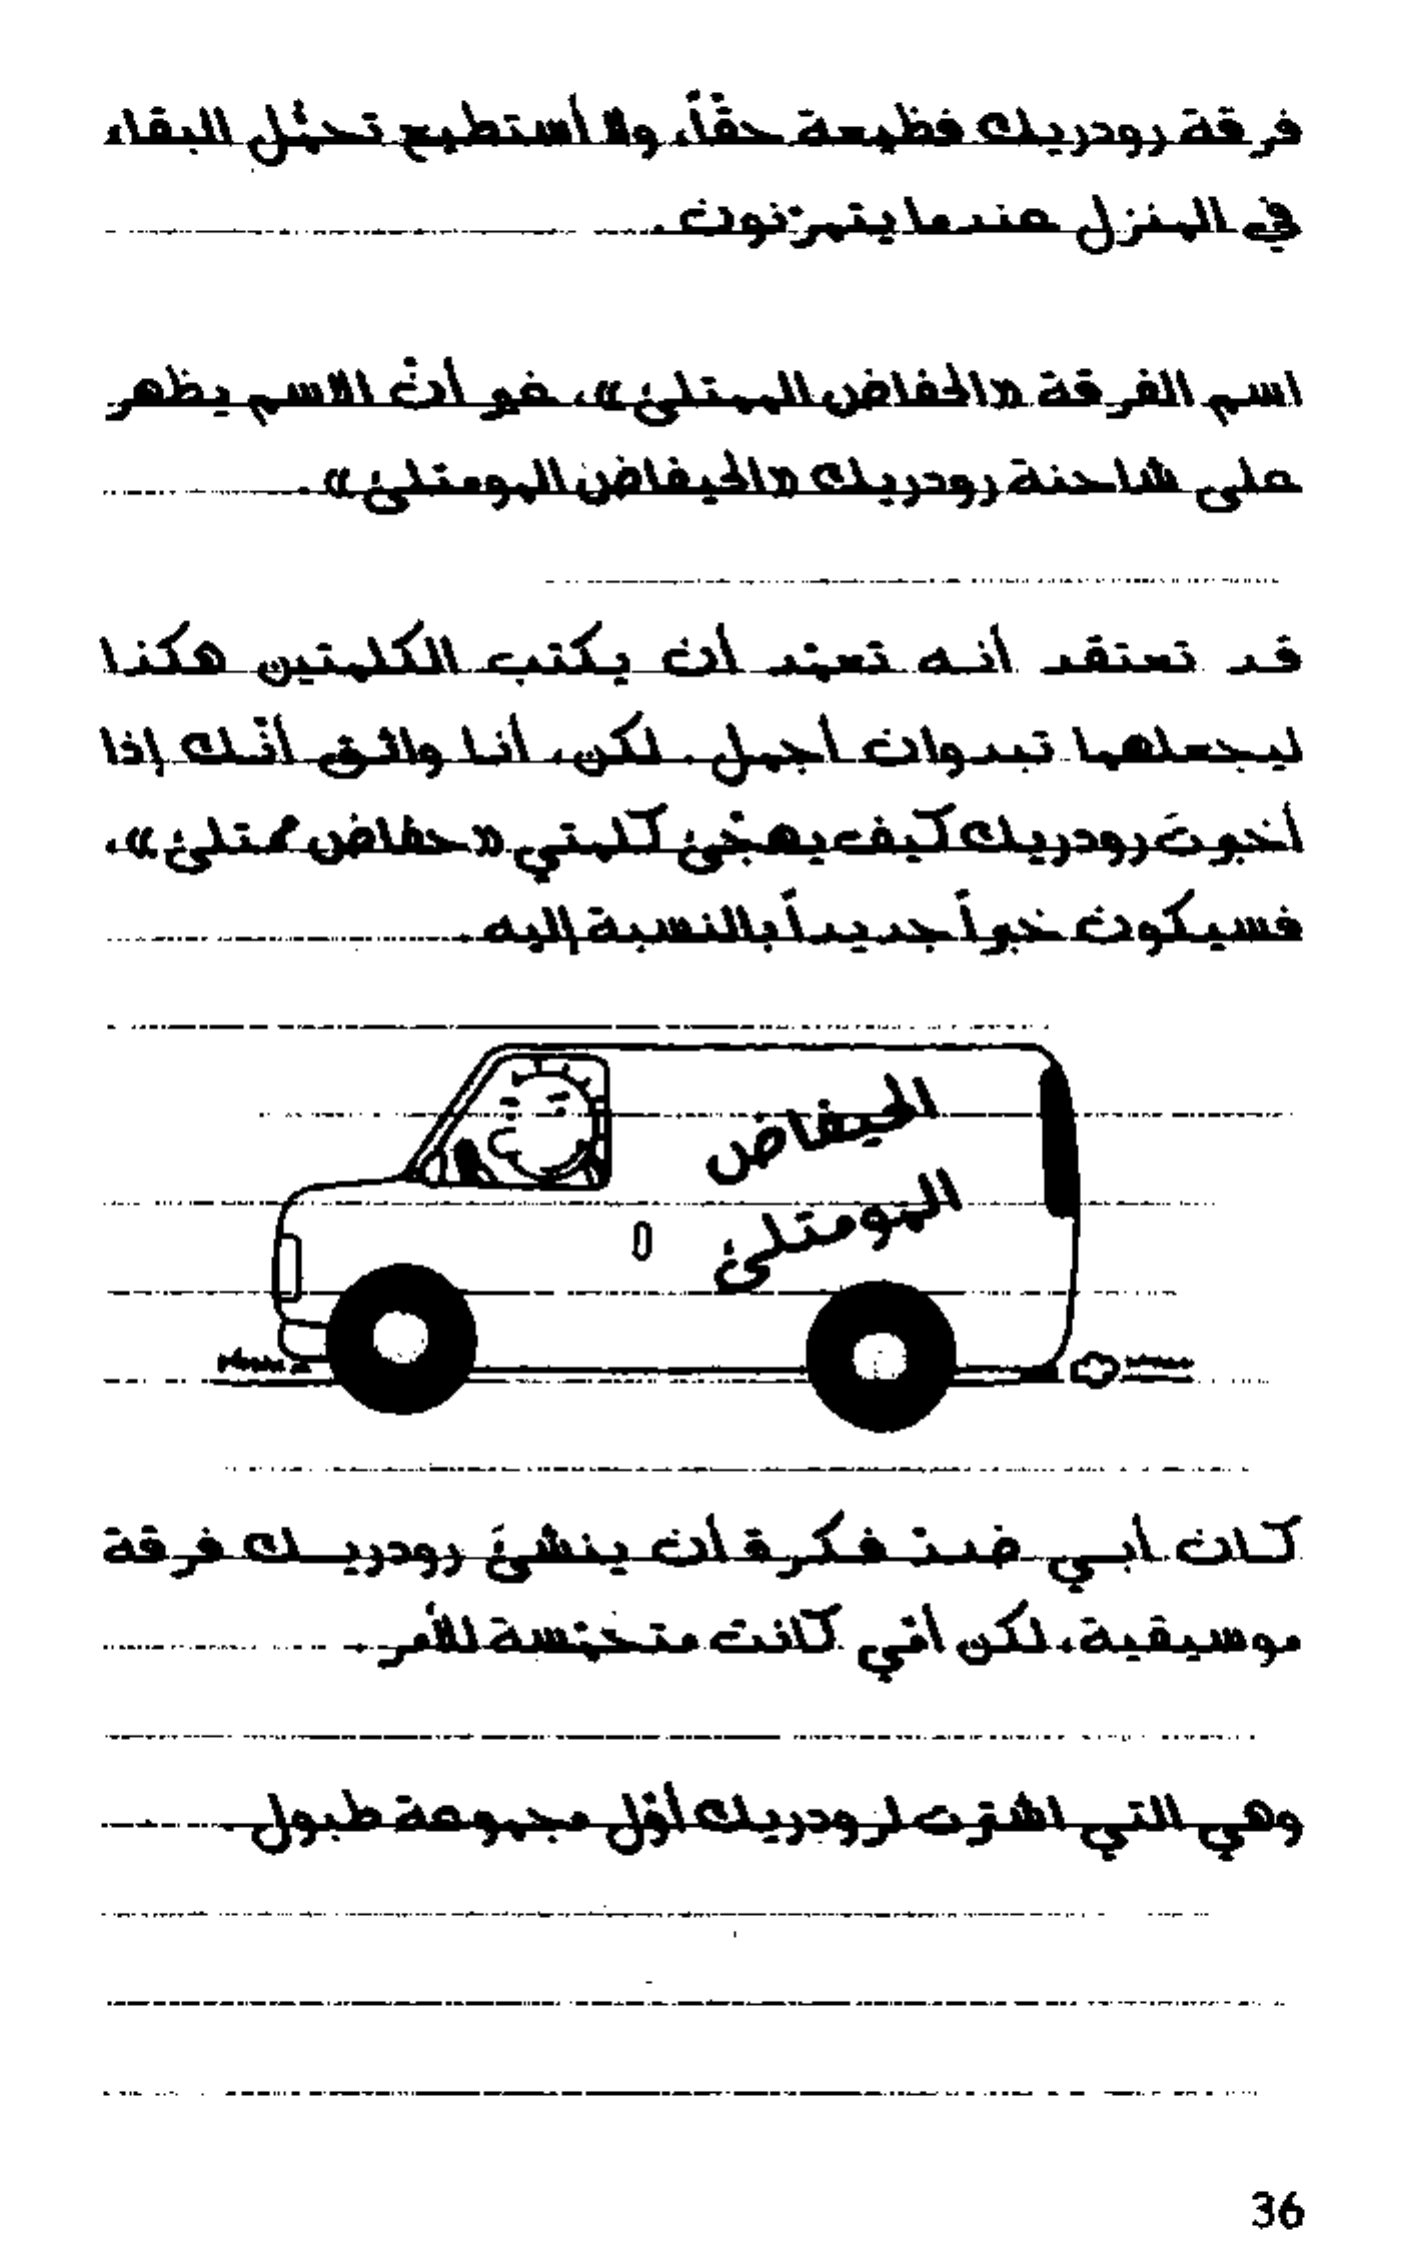 فرقة رودريك فظيعة حقّاً، ولا أستطيع تحمّل البقاء
في المنزل عندما يتمرّنون.
اسم الفرقة «الحفاض الممتلئ»، غير أنّ الاسم يظهر
على شاحنة رودريك «الحيفاض المومتلئ».
قد تعتقد أنه تعمّد أن يكتب الكلمتين هكذا
ليجعلهما تبدوان أجمل. لكن، أنا واثق أنّك إذا
أخبرتَ رودريك كيف يهجّئ كلمتي «حفاض ممتلئ»،
فسيكون خبراً جديداً بالنسبة إليه.
الحيفاض
المومتلئ
كان أبي ضدّ فكرة أن ينشئَ رودريك فرقة
موسيقية، لكن أمّي كانت متحمّسة للأمر.
وهي التي اشترت لرودريك أوّل مجموعة طبول.
36